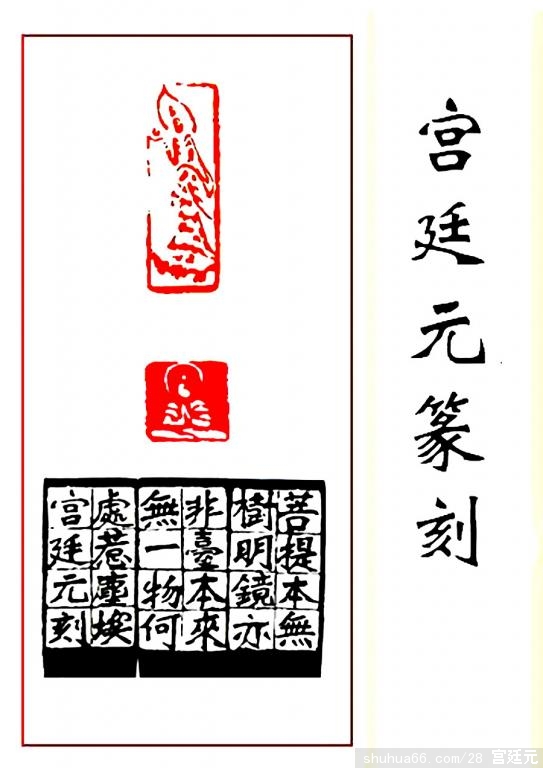 宫廷元篆刻
菩提本無
樹明鏡亦
非臺本來
無一物何
處惹塵埃
宫廷元刻
shuhua66.com/28 宫廷元